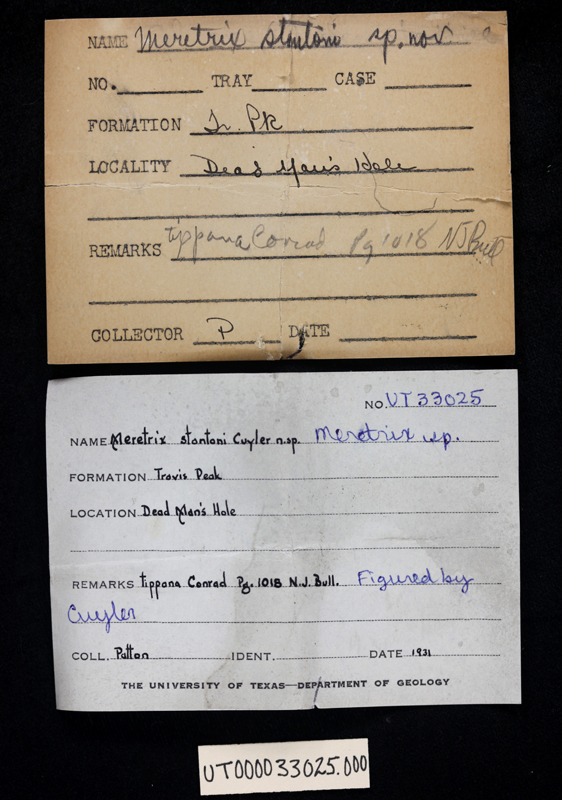 NAME Meretrix stantoni sp. nov
NO. TRAY CASE
FORMATION Tr. Pk
LOCALITY Dead Man's Hole
REMARKS tippana Conrad Pg 1018 NJ Bull
COLLECTOR P DATE
NO. UT33025
NAME Meretrix stantoni Cuyler n.sp. Meretrix sp.
FORMATION Travis Peak
LOCATION Dead Man's Hole
REMARKS tippana Conrad Pg. 1018 N.J. Bull. Figured by
Cuyler
COLL. Patton IDENT. DATE 1931
THE UNIVERSITY OF TEXAS—DEPARTMENT OF GEOLOGY
UT000033025.000